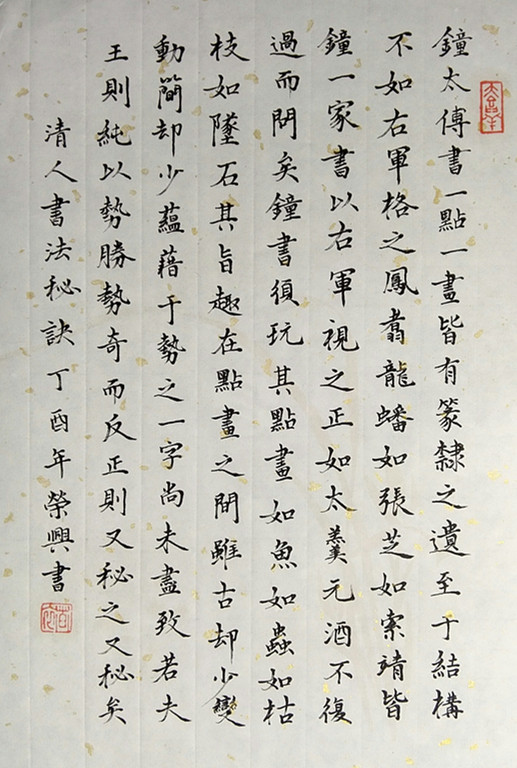 鐘太傅書一點一畫皆有篆隸之遺至于結構
不如右軍格之鳳翥龍蟠如張芝如索靖皆
鐘一家書以右軍視之正如太羹元酒不復
過而問矣鐘書須玩其點畫如魚如蟲如枯
枝如墜石其旨趣在點畫之間雖古却少變
動簡却少蘊藉于勢之一字尚未盡致若夫
王則純以勢勝勢奇而反正則又秘之又秘矣
清人書法秘訣丁酉年榮興書